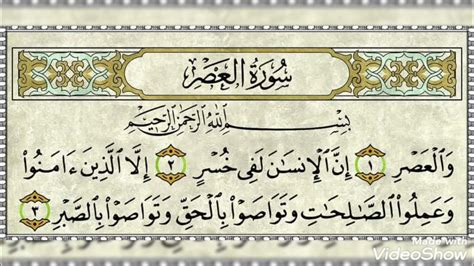 سُورَةُ العَصْرِ
بِسْمِ اللَّهِ الرَّحْمَٰنِ الرَّحِيمِ
وَٱلْعَصْرِ ١ إِنَّ ٱلْإِنسَٰنَ لَفِى خُسْرٍ ٢ إِلَّا ٱلَّذِينَ ءَامَنُوا۟
وَعَمِلُوا۟ ٱلصَّٰلِحَٰتِ وَتَوَاصَوْا۟ بِٱلْحَقِّ وَتَوَاصَوْا۟ بِٱلصَّبْرِ ٣
Made with
VideoShow